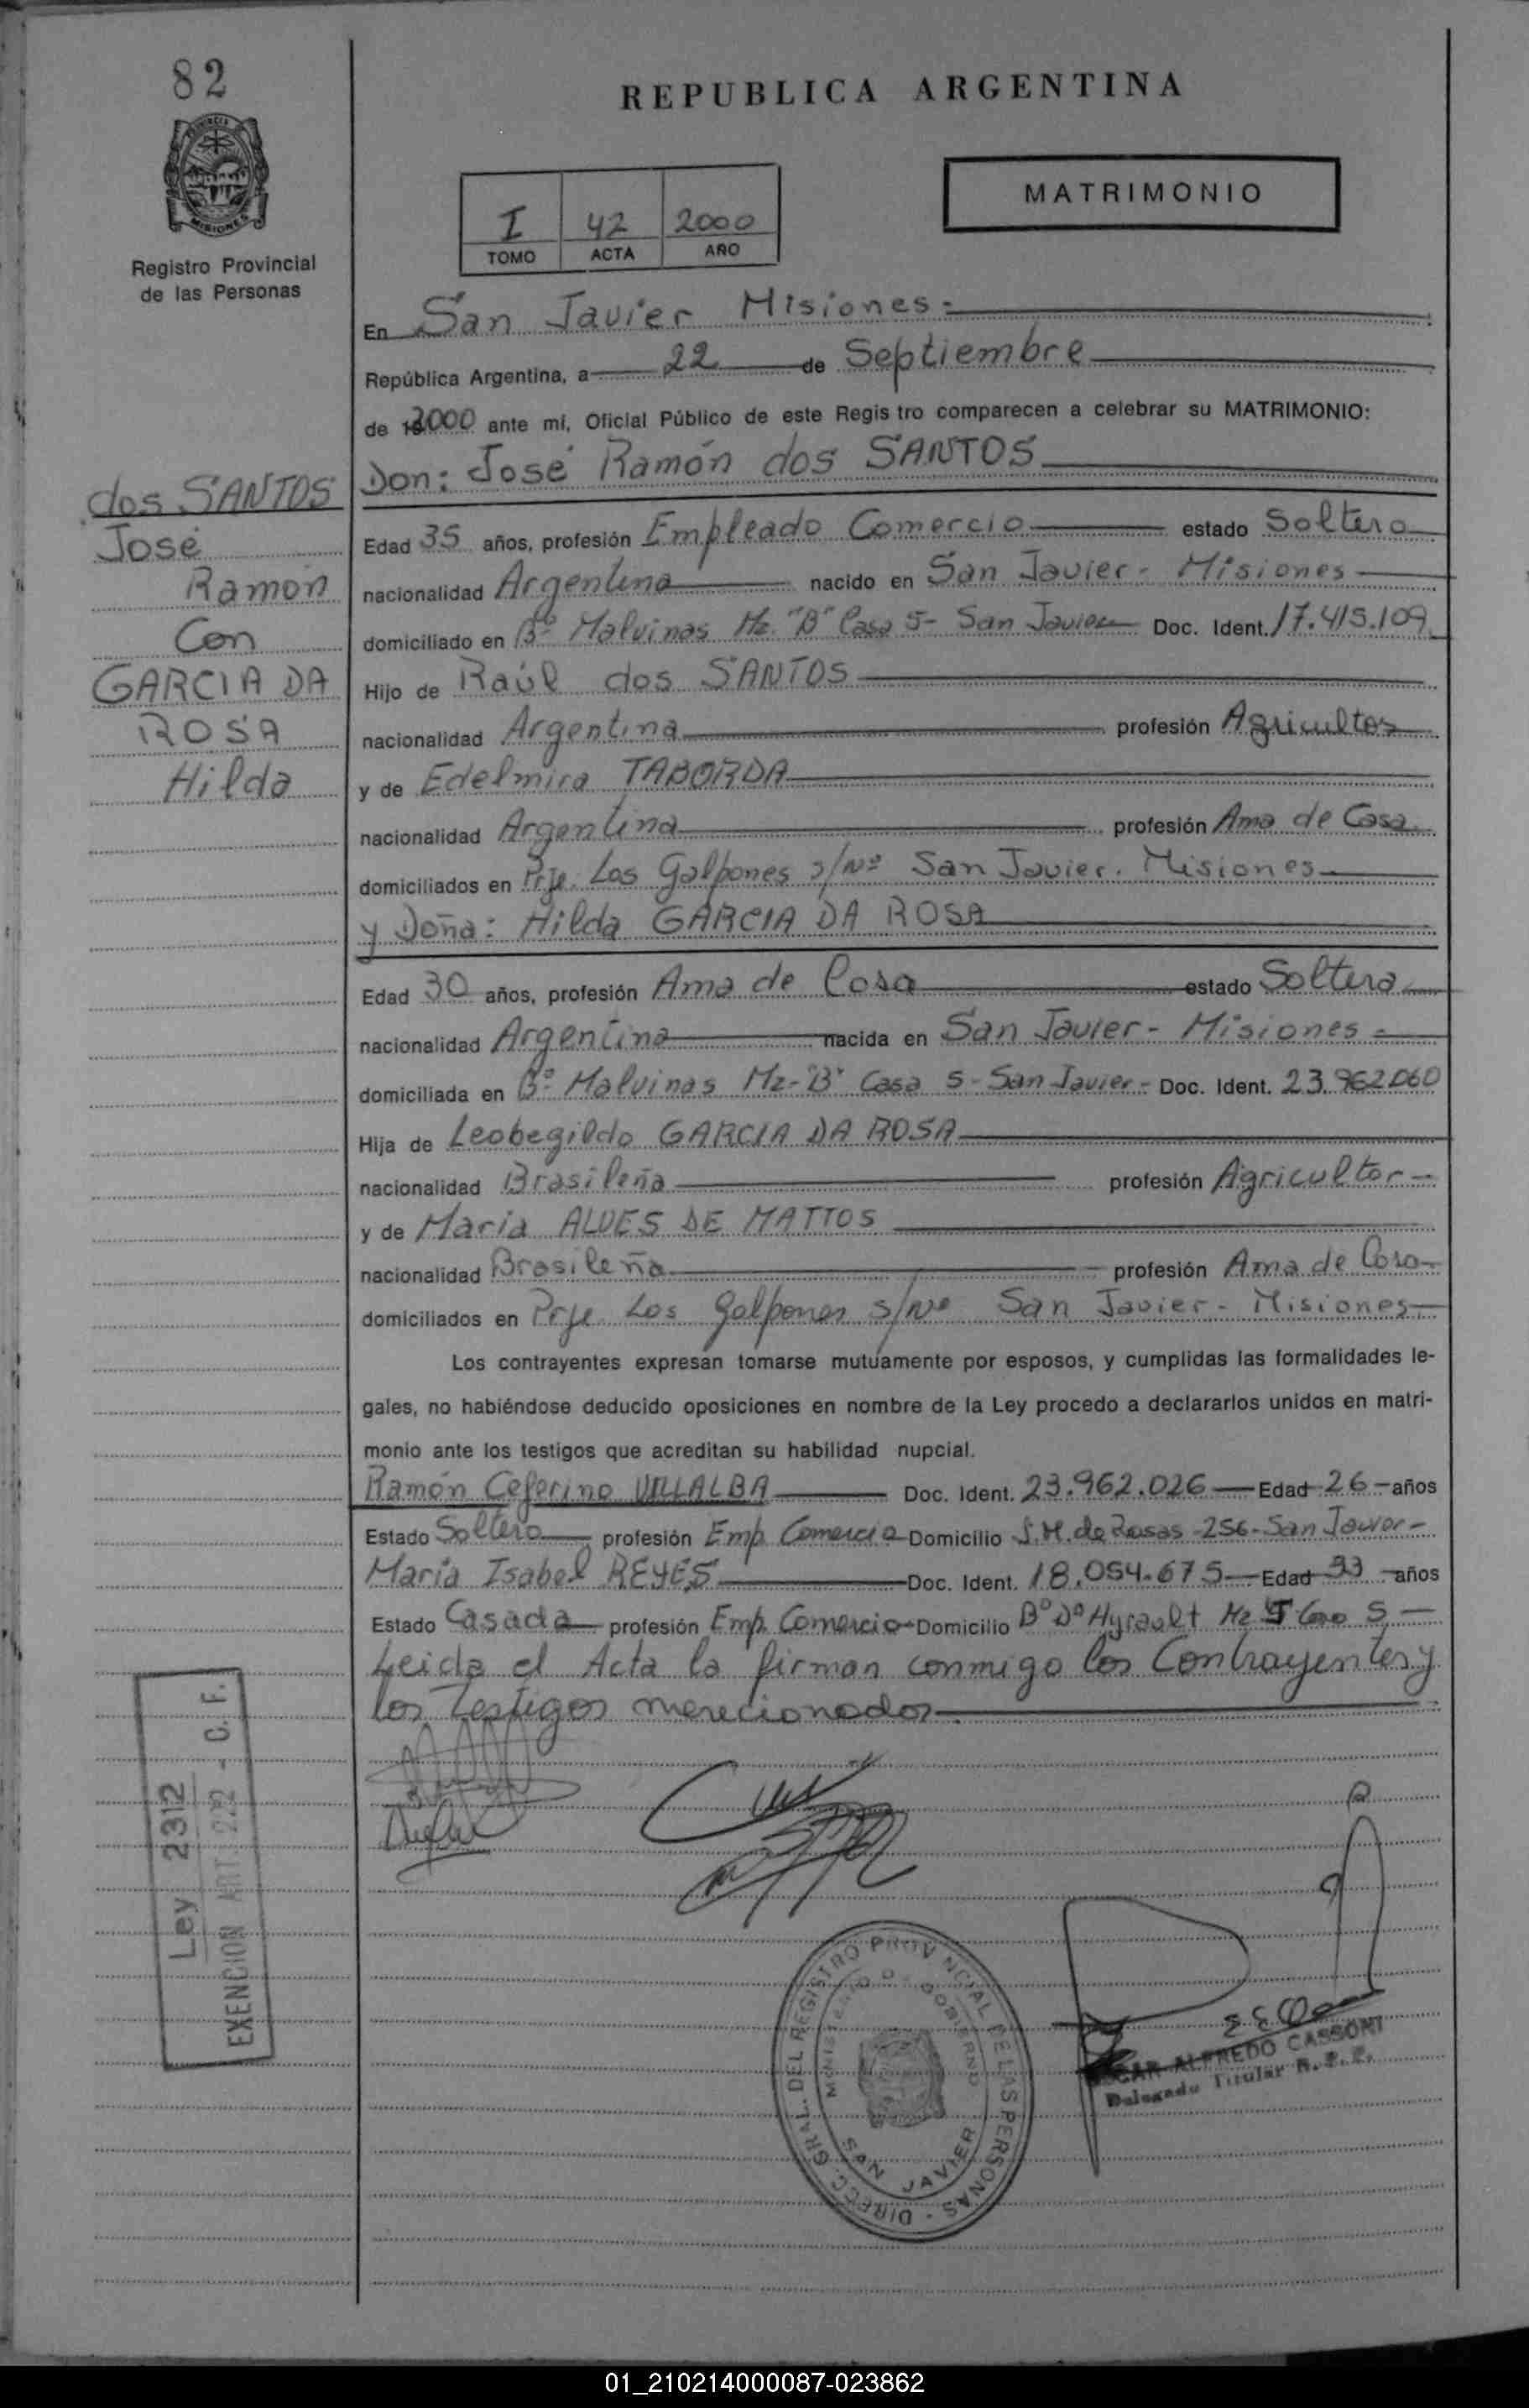 82
REPUBLICA ARGENTINA
MATRIMONIO
I 42 2000
TOMO ACTA AÑO
PROVINCIA DE MISIONES
Registro Provincial
de las Personas
En San Javier Misiones=
República Argentina, a 22 de Septiembre
de 2000 ante mí, Oficial Público de este Regis tro comparecen a celebrar su MATRIMONIO:
Don: José Ramón dos SANTOS
dos SANTOS
José
Ramón
Con
GARCIA DA
ROSA
Hilda
Edad 35 años, profesión Empleado Comercio estado Soltero
nacionalidad Argentina nacido en San Javier - Misiones
domiciliado en Bº Malvinas Mz. "B" Casa 5- San Javier Doc. Ident. 17.415.109
Hijo de Raúl dos SANTOS
nacionalidad Argentina profesión Agricultor
y de Edelmira TABORDA
nacionalidad Argentina profesión Ama de Casa
domiciliados en Prje. Los Galpones s/Nº San Javier. Misiones
y Doña: Hilda GARCIA DA ROSA
Edad 30 años, profesión Ama de Casa estado Soltera
nacionalidad Argentina nacida en San Javier - Misiones=
domiciliada en Bº Malvinas Mz-"B" Casa 5-San Javier- Doc. Ident. 23.962060
Hija de Leobegildo GARCIA DA ROSA
nacionalidad Brasileña profesión Agricultor-
y de Maria ALVES DE MATTOS
nacionalidad Brasileña profesión Ama de Casa-
domiciliados en Prje. Los Galpones s/Nº San Javier- Misiones-
Los contrayentes expresan tomarse mutuamente por esposos, y cumplidas las formalidades le-
gales, no habiéndose deducido oposiciones en nombre de la Ley procedo a declararlos unidos en matri-
monio ante los testigos que acreditan su habilidad nupcial.
Ramón Ceferino VILLALBA Doc. Ident. 23.962.026 Edad 26-años
Estado Soltero profesión Emp. Comercio Domicilio J.M. de Rosas-256-San Javier-
María Isabel REYES Doc. Ident. 18.054.675 Edad 33 años
Estado Casada profesión Emp. Comercio Domicilio Bº Dº Hyrault Mz Casa 5-
Leida el Acta la firman conmigo los Contrayentes y
los Testigos merecionados.
Ley 2312
EXENCION ART. 222 - C. F.
DIRECC. GRAL. DEL REGISTRO PROVINCIAL DE LAS PERSONAS -
MINISTERIO DE GOBIERNO
SAN JAVIER
OSCAR ALFREDO CASSONI
Delegado Titular R. P. P.
01_210214000087-023862